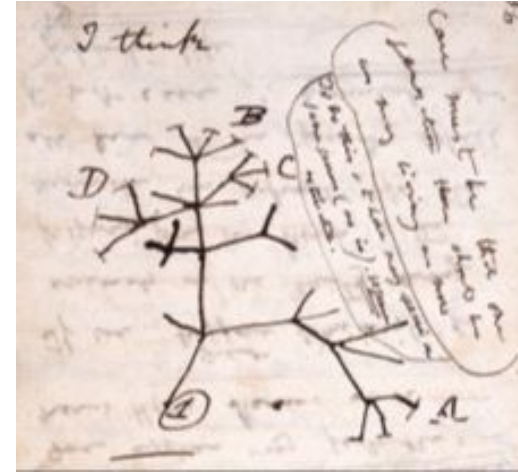 I think
B
C
D
A
1
Case must be that one
generation then should be
as many living as now
To do this & to have many species in
same genus (as is) requires
extinction.